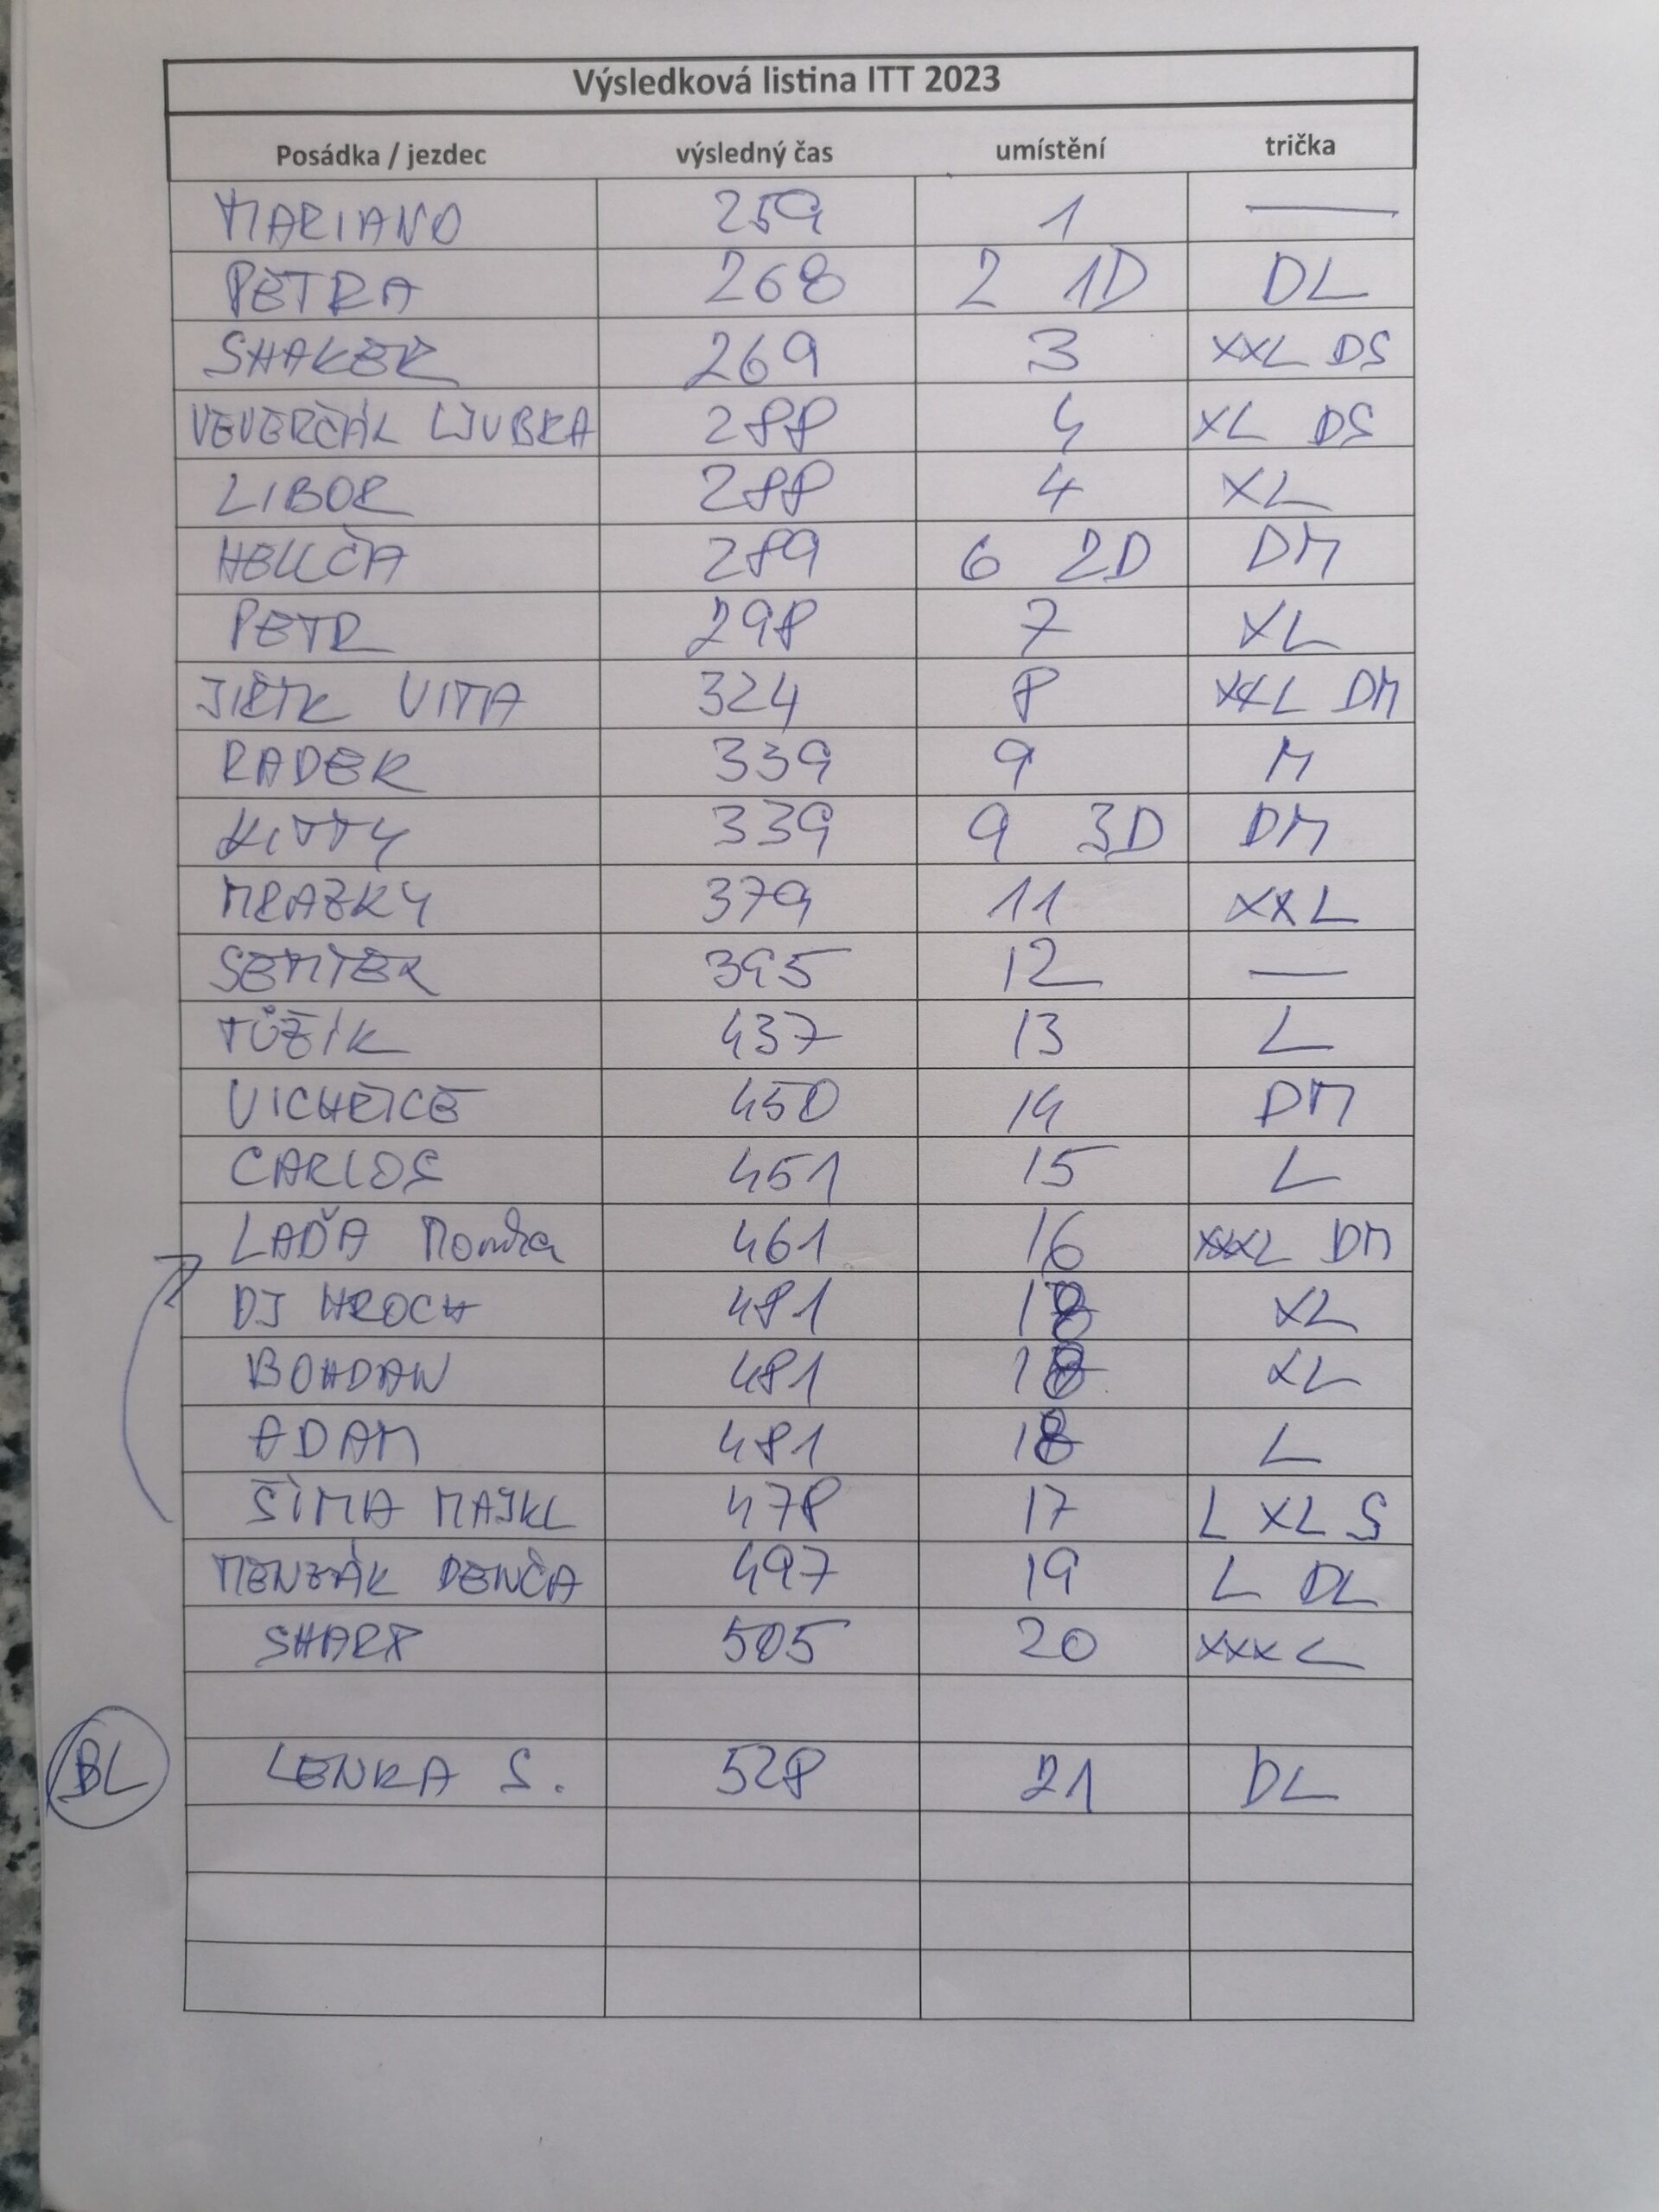 Výsledková listina ITT 2023
Posádka / jezdec výsledný čas umístění trička
MARIANO 259 1 —
PETRA 268 2 1D DL
SHAKER 269 3 XXL DS
VEVERČÁK LJUBKA 288 4 XL DS
LIBOR 288 4 XL
HELČA 289 6 2D DM
PETR 298 7 XL
VITA 324 8 XXL DM
RADEK 339 9 M
KITTY 339 9 3D DM
MRAZKY 379 11 XXL
SEMTEX 395 12 —
TŮŽIK 437 13 L
VICHŘICE 450 14 DM
CARLOS 451 15 L
LAĎA Monika 461 16 XXXL DM
DJ HROCH 481 18 XL
BOHDAN 481 18 XL
ADAM 481 18 L
ŠÍMA MAJKL 478 17 L XL S
MENZÁK DENČA 497 19 L DL
SHARP 505 20 XXXL
BL LENKA S. 528 21 DL